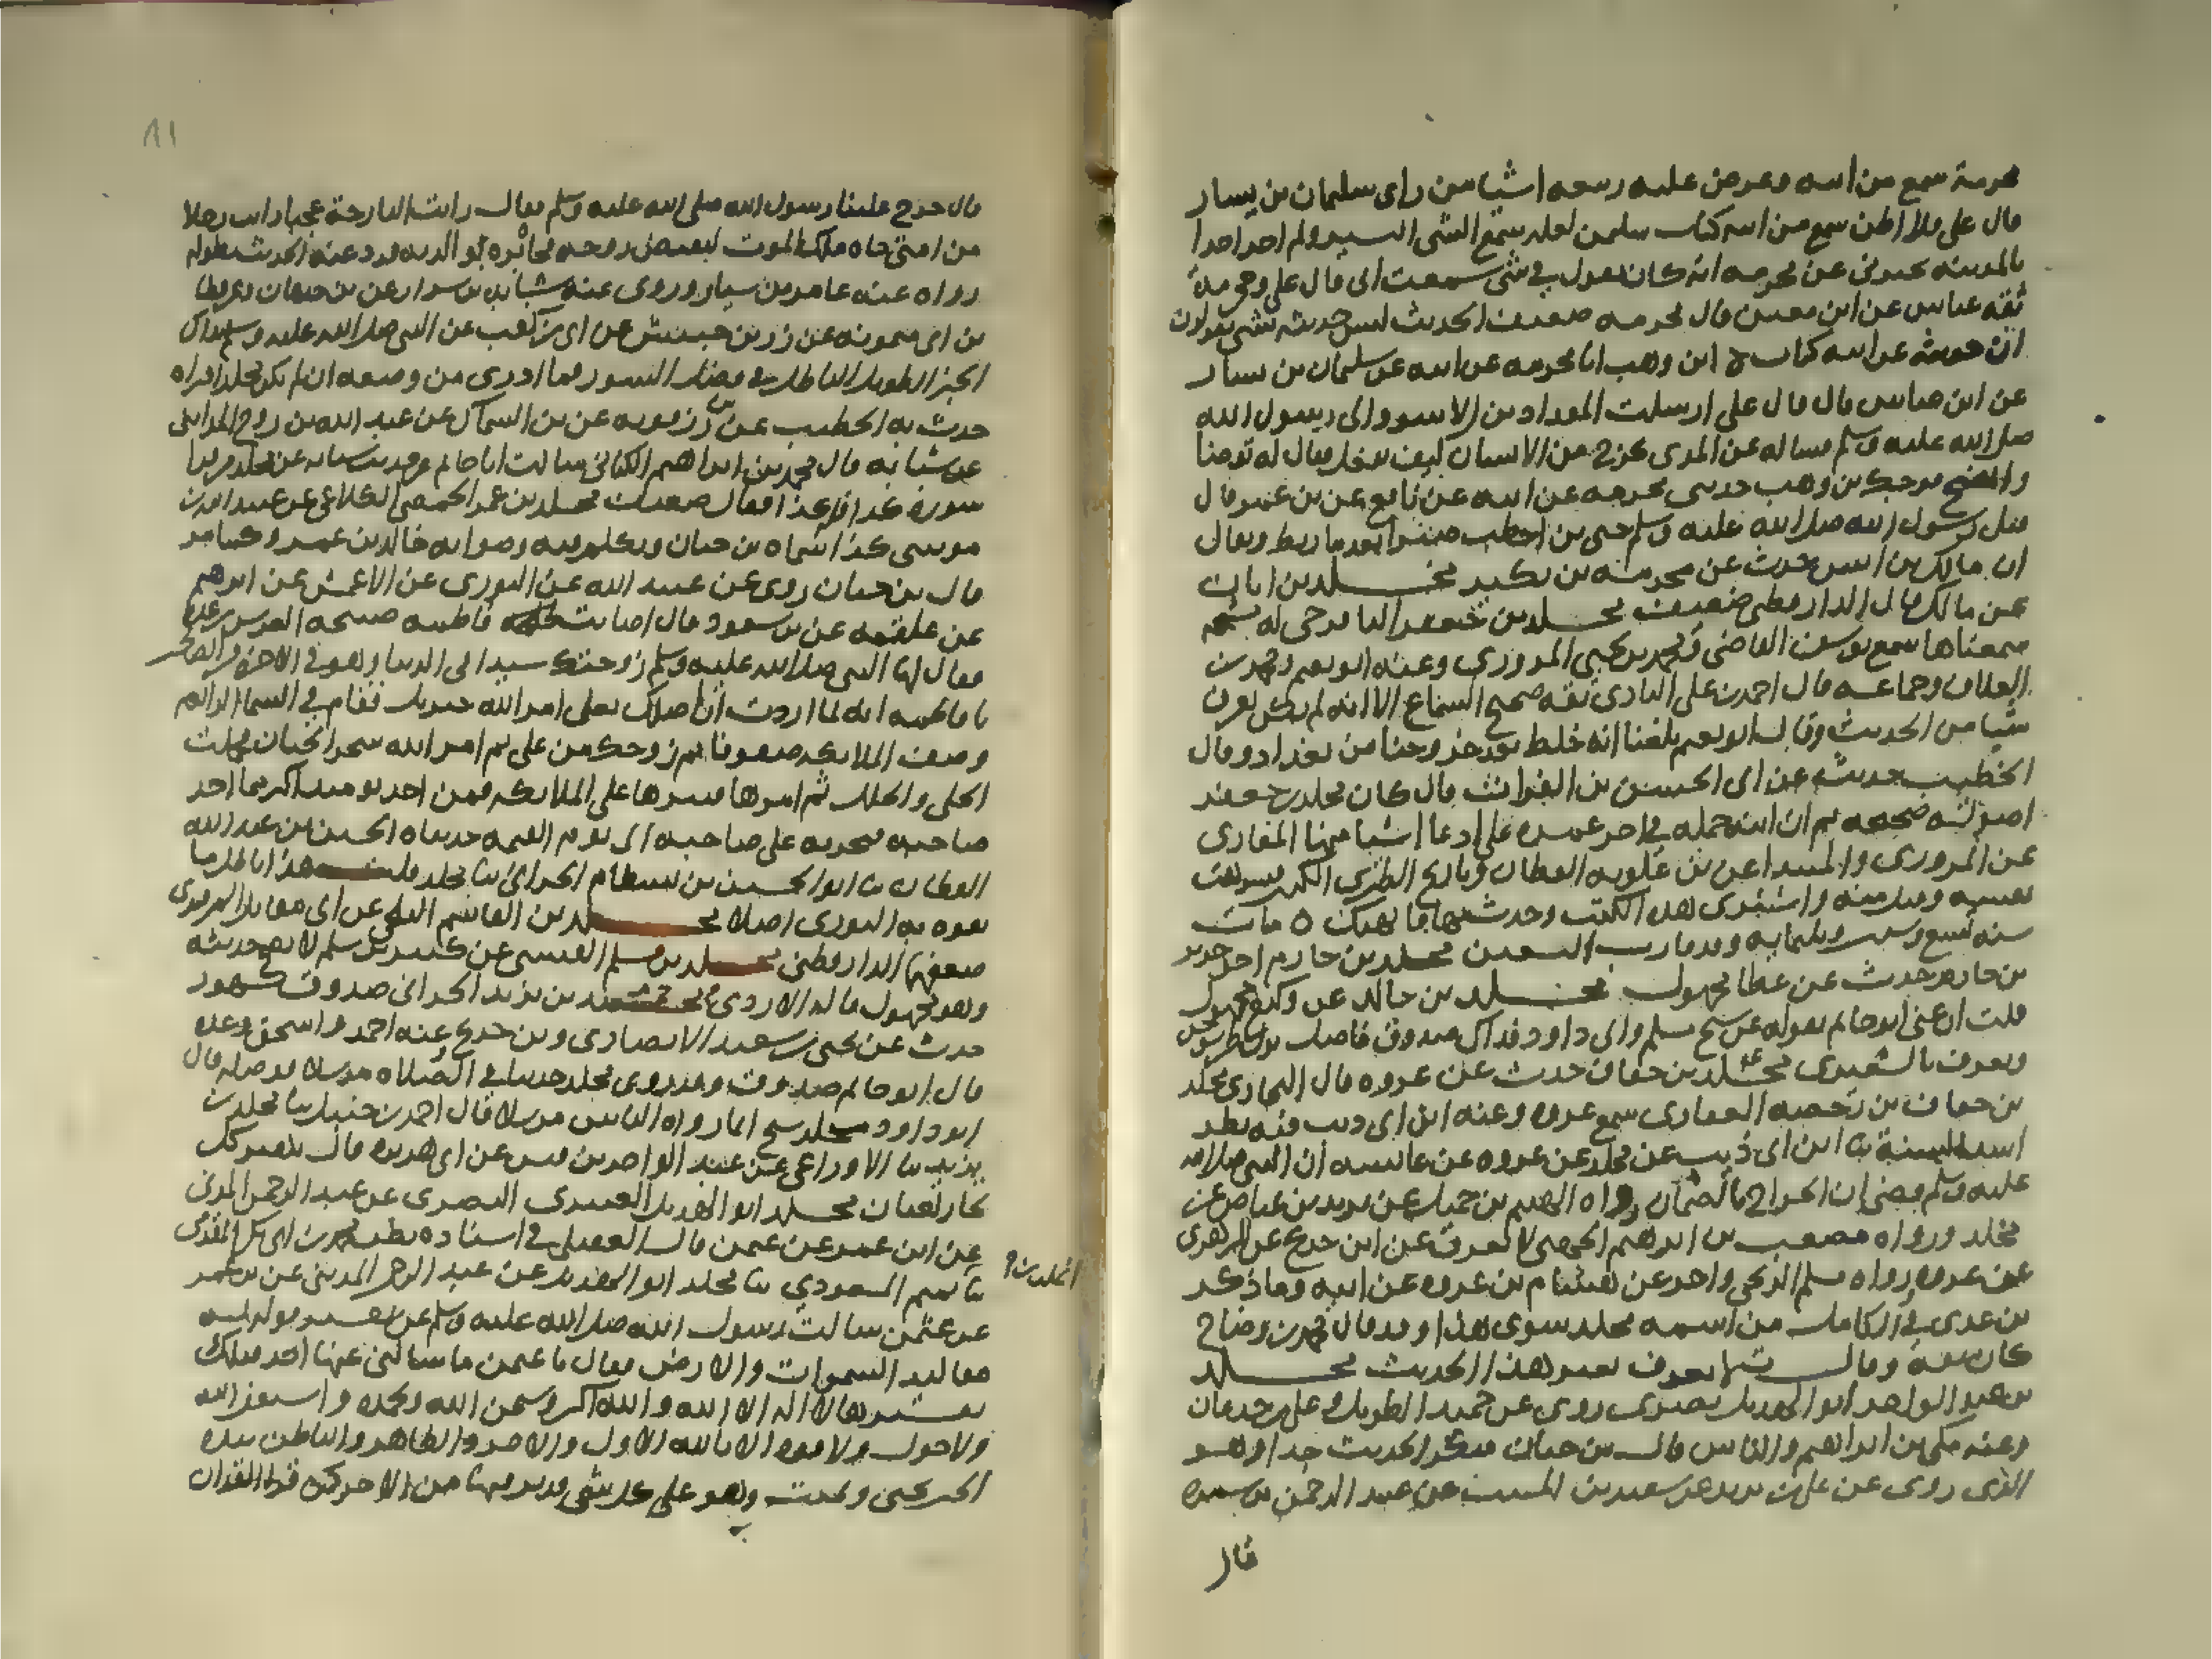 مخرمة سمع من ابيه وعرض عليه ربيعه اشيا من راى سليمان بن يسار
قال على ولا اظن سمع من ابيه كتاب سليمن لعله سمع الشى اليسير ولم اجد احدا
بالمدينه يخبرنى عن مخرمه انه كان يقول فى شى سمعت ابى قال على ومخرمة
ثقه عباس عن ابن معين قال مخرمه ضعيف الحديث ليس حديثه بشى يقولون
ان حديثه عن ابيه كتاب ابن وهب انا مخرمه عن ابيه عن سليمان بن يسار
عن ابن عباس قال قال على ارسلت المقداد بن الاسود الى رسول الله
صلى الله عليه وسلم يساله عن المذى يخرج من الانسان كيف يفعل فقال له توضا
وانضح فرجك بن وهب حدثنى مخرمه عن ابيه عن نافع عن بن عمر قال
قتل رسول الله صلى الله عليه وسلم حيى بن اخطب صبرا بعد ما ربط ويقال
ان مالك بن انس حدث عن مخرمة بن بكير مخلد بن ابان
عن مالك قال الدارقطنى ضعيف مخلد بن جعفر الباقرحى له مشيخة
سمعناها سمع يوسف القاضى ومحمد بن يحيى المروزى وعنه ابو نعيم ومحمد بن
العلاف وجماعه قال احمد بن على البادى ثقه صحيح السماع الا انه لم يكن يعرف
شيا من الحديث وقال ابو نعيم بلغنا انه خلط بعد خروجنا من بغداد وقال
الخطيب حديثه عن ابى الحسن بن الفرات قال كان مخلد بن جعفر
اصوله صحيحه ثم ان ابنه حمله فى اخر عمره على ادعا اشيا منها المغازى
عن المروزى والمبتدا عن بن علويه القطان وتاريخ الطبرى الكبير
نفسه وقبل منه واشترى هذه الكتب وحدث بها فانهتك مات
سنه تسع وستين وثلثمايه وقد قارب التسعين مخلد بن حازم اخو جرير
بن حازم حدث عن عطا مجهول مخلد بن خالد عن وكيع مجهول
قلت ان عنى ابو حاتم بقوله عن شيخ مسلم وابى داود فذاك صدوق فاضل نزل طرسوس
ويعرف بالشعيرى مخلد بن خفاف حدث عن عروه قال البخارى مخلد
بن خفاف بن رحضه الغفارى سمع عروه وعنه ابن ابى ذيب فيه نظر
ابن ابى ذيب عن مخلد عن عروه عن عائشه ان النبى صلى الله
عليه وسلم قضى ان الخراج بالضمان رواه الهيثم بن جميل عن يزيد بن عياض عن
مخلد ورواه مصعب بن ابرهيم الحمصى لا يعرف عن ابن جريج عن الزهرى
عن عروه رواه مسلم الزنجى واخر عن هشام بن عروه عن ابيه وما ذكر
بن عدى فى الكامل من اسمه مخلد سوى هذا وقد قال محمد بن وضاح
كان ثقه وقال لا يعرف بغير هذا الحديث مخلد
بن عبد الواحد ابو الهذيل بصرى روى عن حميد الطويل وعلى بن جدعان
وعنه مكى بن ابراهيم والناس قال بن حبان منكر الحديث جدا وهو
الذى روى عن على بن زيد عن سعيد بن المسيب عن عبد الرحمن بن سمره
قال
٨١
قال خرج علينا رسول الله صلى الله عليه وسلم فقال رايت البارحة عجبا رايت رجلا
من امتى جاه ملك الموت ليقبض روحه فجاءه بره بوالديه فرد عنه الحديث بطوله
رواه عنه عامر بن سيار وروى عنه شبابه بن سوار عن بن جدعان وعن عطا
بن ابى ميمونه عن زر بن حبيش عن ابى بن كعب عن النبى صلى الله عليه وسلم بذاك
الخبر الطويل الباطل فى فضايل السور فما ادرى من وضعه ان لم يكن مخلد افتراه
حدث به الخطيب عن بن رزقويه عن بن السماك عن عبد الله بن روح المداينى
عن شبابه قال محمد بن ابراهيم الكنانى سالت ابا حاتم عن حديث شبابه عن مخلد من قرا
سورة كذا فله كذا فقال ضعيف مخلد بن عمر الحمصى الكلاعى عن عبيد الله بن
موسى كذا سماه بن حبان وتكلم فيه وصوابه خالد بن عمرو كما مر
قال بن حبان روى عن عبيد الله عن الثورى عن الاعمش عن ابرهيم
عن علقمه عن بن مسعود قال اصابت فاطمه صبيحه العرس رعده
فقال لها النبى صلى الله عليه وسلم زوجتك سيدا فى الدنيا وهو فى الاخرة من الصالحين
يا فاطمه انه لما اردت ان املكك بعلى امر الله جبريل فقام فى السما الرابعه
وصف الملايكه صفوفا ثم زوجك من على ثم امر الله شجر الجنان فحملت
الحلى والحلل ثم امرها فنثرتها على الملايكه فمن اخذ يوميذ اكثر مما اخذ
صاحبه افتخر به على صاحبه الى يوم القيمه حدثناه الحسين بن عبد الله
القطان ثنا ابو الحسين بن بسطام الحرانى ثنا مخلد قلت هذا باطل ما
تفوه به الثورى اصلا مخلد بن القاسم البلخى عن ابى مقاتل السمرقندى
ضعفها الدارقطنى مخلد بن مسلم القيسى عن كثير بن سلم لا يصح حديثه
وهو مجهول قاله الازدى مخلد بن يزيد الحرانى صدوق مشهور
حدث عن يحيى بن سعيد الانصارى وبن جريج وعنه احمد واسحق وعده
قال ابو حاتم صدوق وقد روى مخلد حديثا فى الصلاه مرسلا فوصله قال
ابو داود مخلد شيخ انما رواه الناس مرسلا قال احمد بن حنبل ثنا مخلد بن
يزيد ثنا الاوزاعى عن عبد الواحد بن قيس عن ابى هريره قال
مخلد ابو الهذيل العنبرى البصرى عن عبد الرحمن المدنى
عن ابن عمر عن عثمن قال العقيلى فى اسناده نظر محمد بن ابى بكر المقدمى
ثنا المسعودى ثنا مخلد ابو الهذيل عن عبد الرحمن المدينى عن بن عمر
عن عثمن سالت رسول الله صلى الله عليه وسلم عن تفسير قوله له
مقاليد السموات والارض فقال يا عثمن ما سالنى عنها احد قبلك
تفسيرها لا اله الا الله والله اكبر وسبحن الله وبحمده واستغفر الله
ولا حول ولا قوه الا بالله الاول والاخر والظاهر والباطن بيده
الخير يحيى ويميت وهو على كل شى قدير من قالها كمن قرا القران